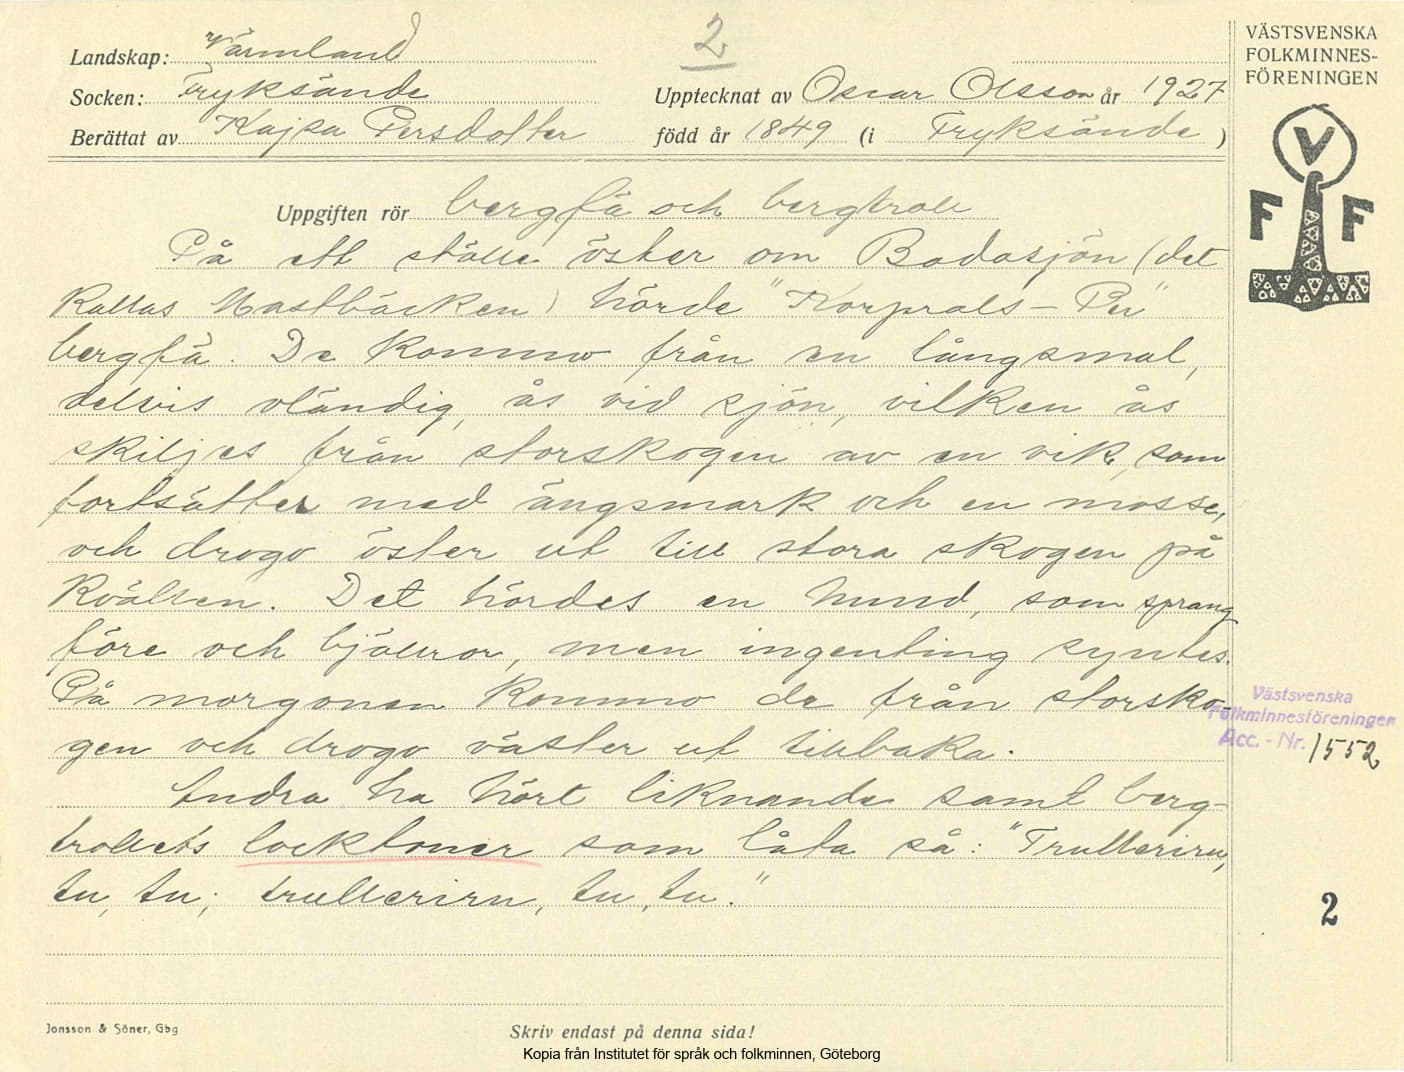 2
VÄSTSVENSKA
FOLKMINNES-
FÖRENINGEN
V
F F
Landskap: Värmland
Socken: Fryksände
Upptecknat av Oscar Olsson år 1927
Berättat av Kajsa Persdotter född år 1849 (i Fryksände )
Uppgiften rör bergfä och bergtroll
På ett ställe öster om Badasjön (det
kallas Mastbäcken) hörde "Korprals-Per"
bergfä. De kommo från en långsmal,
delvis oländig, ås vid sjön, vilken ås
skiljes från storskogen av en vik, som
fortsätter med ängsmark och en mosse,
och drogo öster ut till stora skogen på
Kvälten. Det hördes en hund, som sprang
före och bjällror, men ingenting syntes.
På morgonen kommo de från storsko-
gen och drogo väster ut tillbaka.
Andra ha hört liknande samt berg-
trollets locktoner som låta så: "Trulleriru,
tu, tu; trulleriru, tu, tu."
Västsvenska
Folkminnesföreningen
Acc. - Nr. 1552
2
Jonsson & Söner, Gbg
Skriv endast på denna sida!
Kopia från Institutet för språk och folkminnen, Göteborg